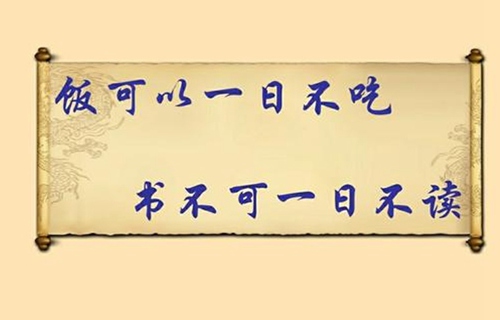 饭可以一日不吃
书不可一日不读